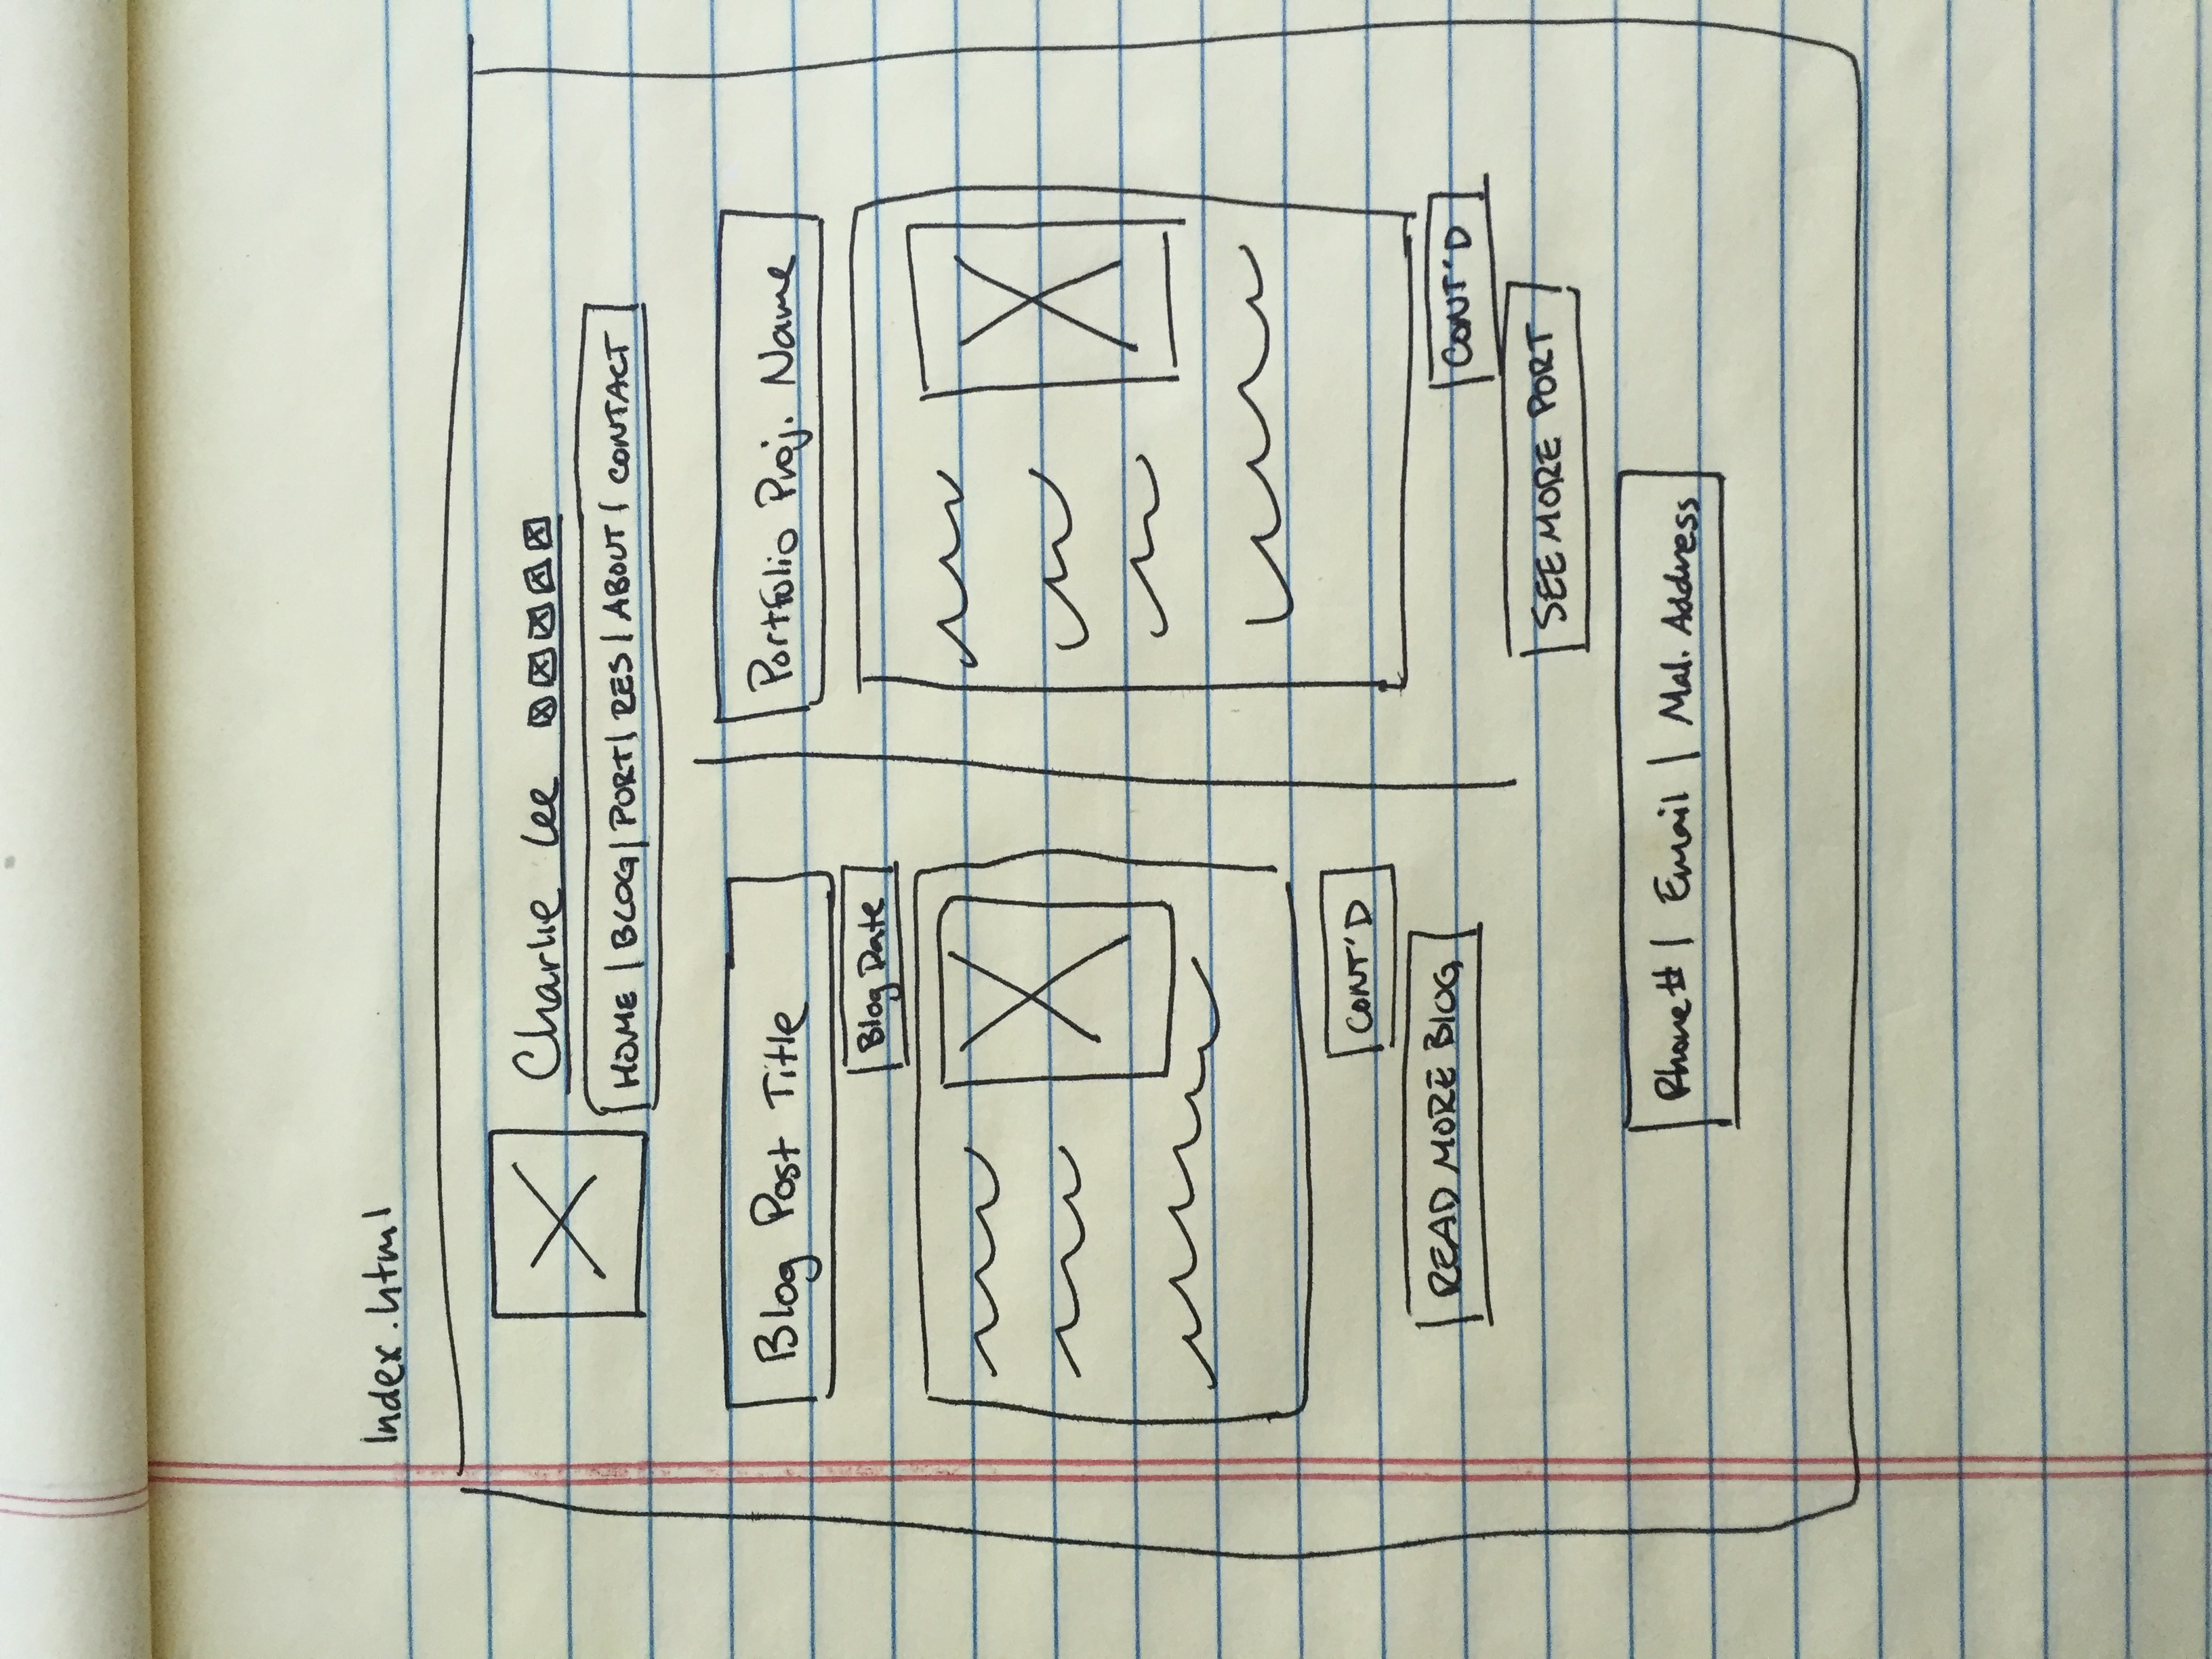 Index.html
Charlie Lee
HOME | BLOG | PORT | RES | ABOUT | CONTACT
Blog Post Title
Blog Date
CONT'D
READ MORE BLOG
Portfolio Proj. Name
CONT'D
SEE MORE PORT
Phone # | Email | Mal. Address